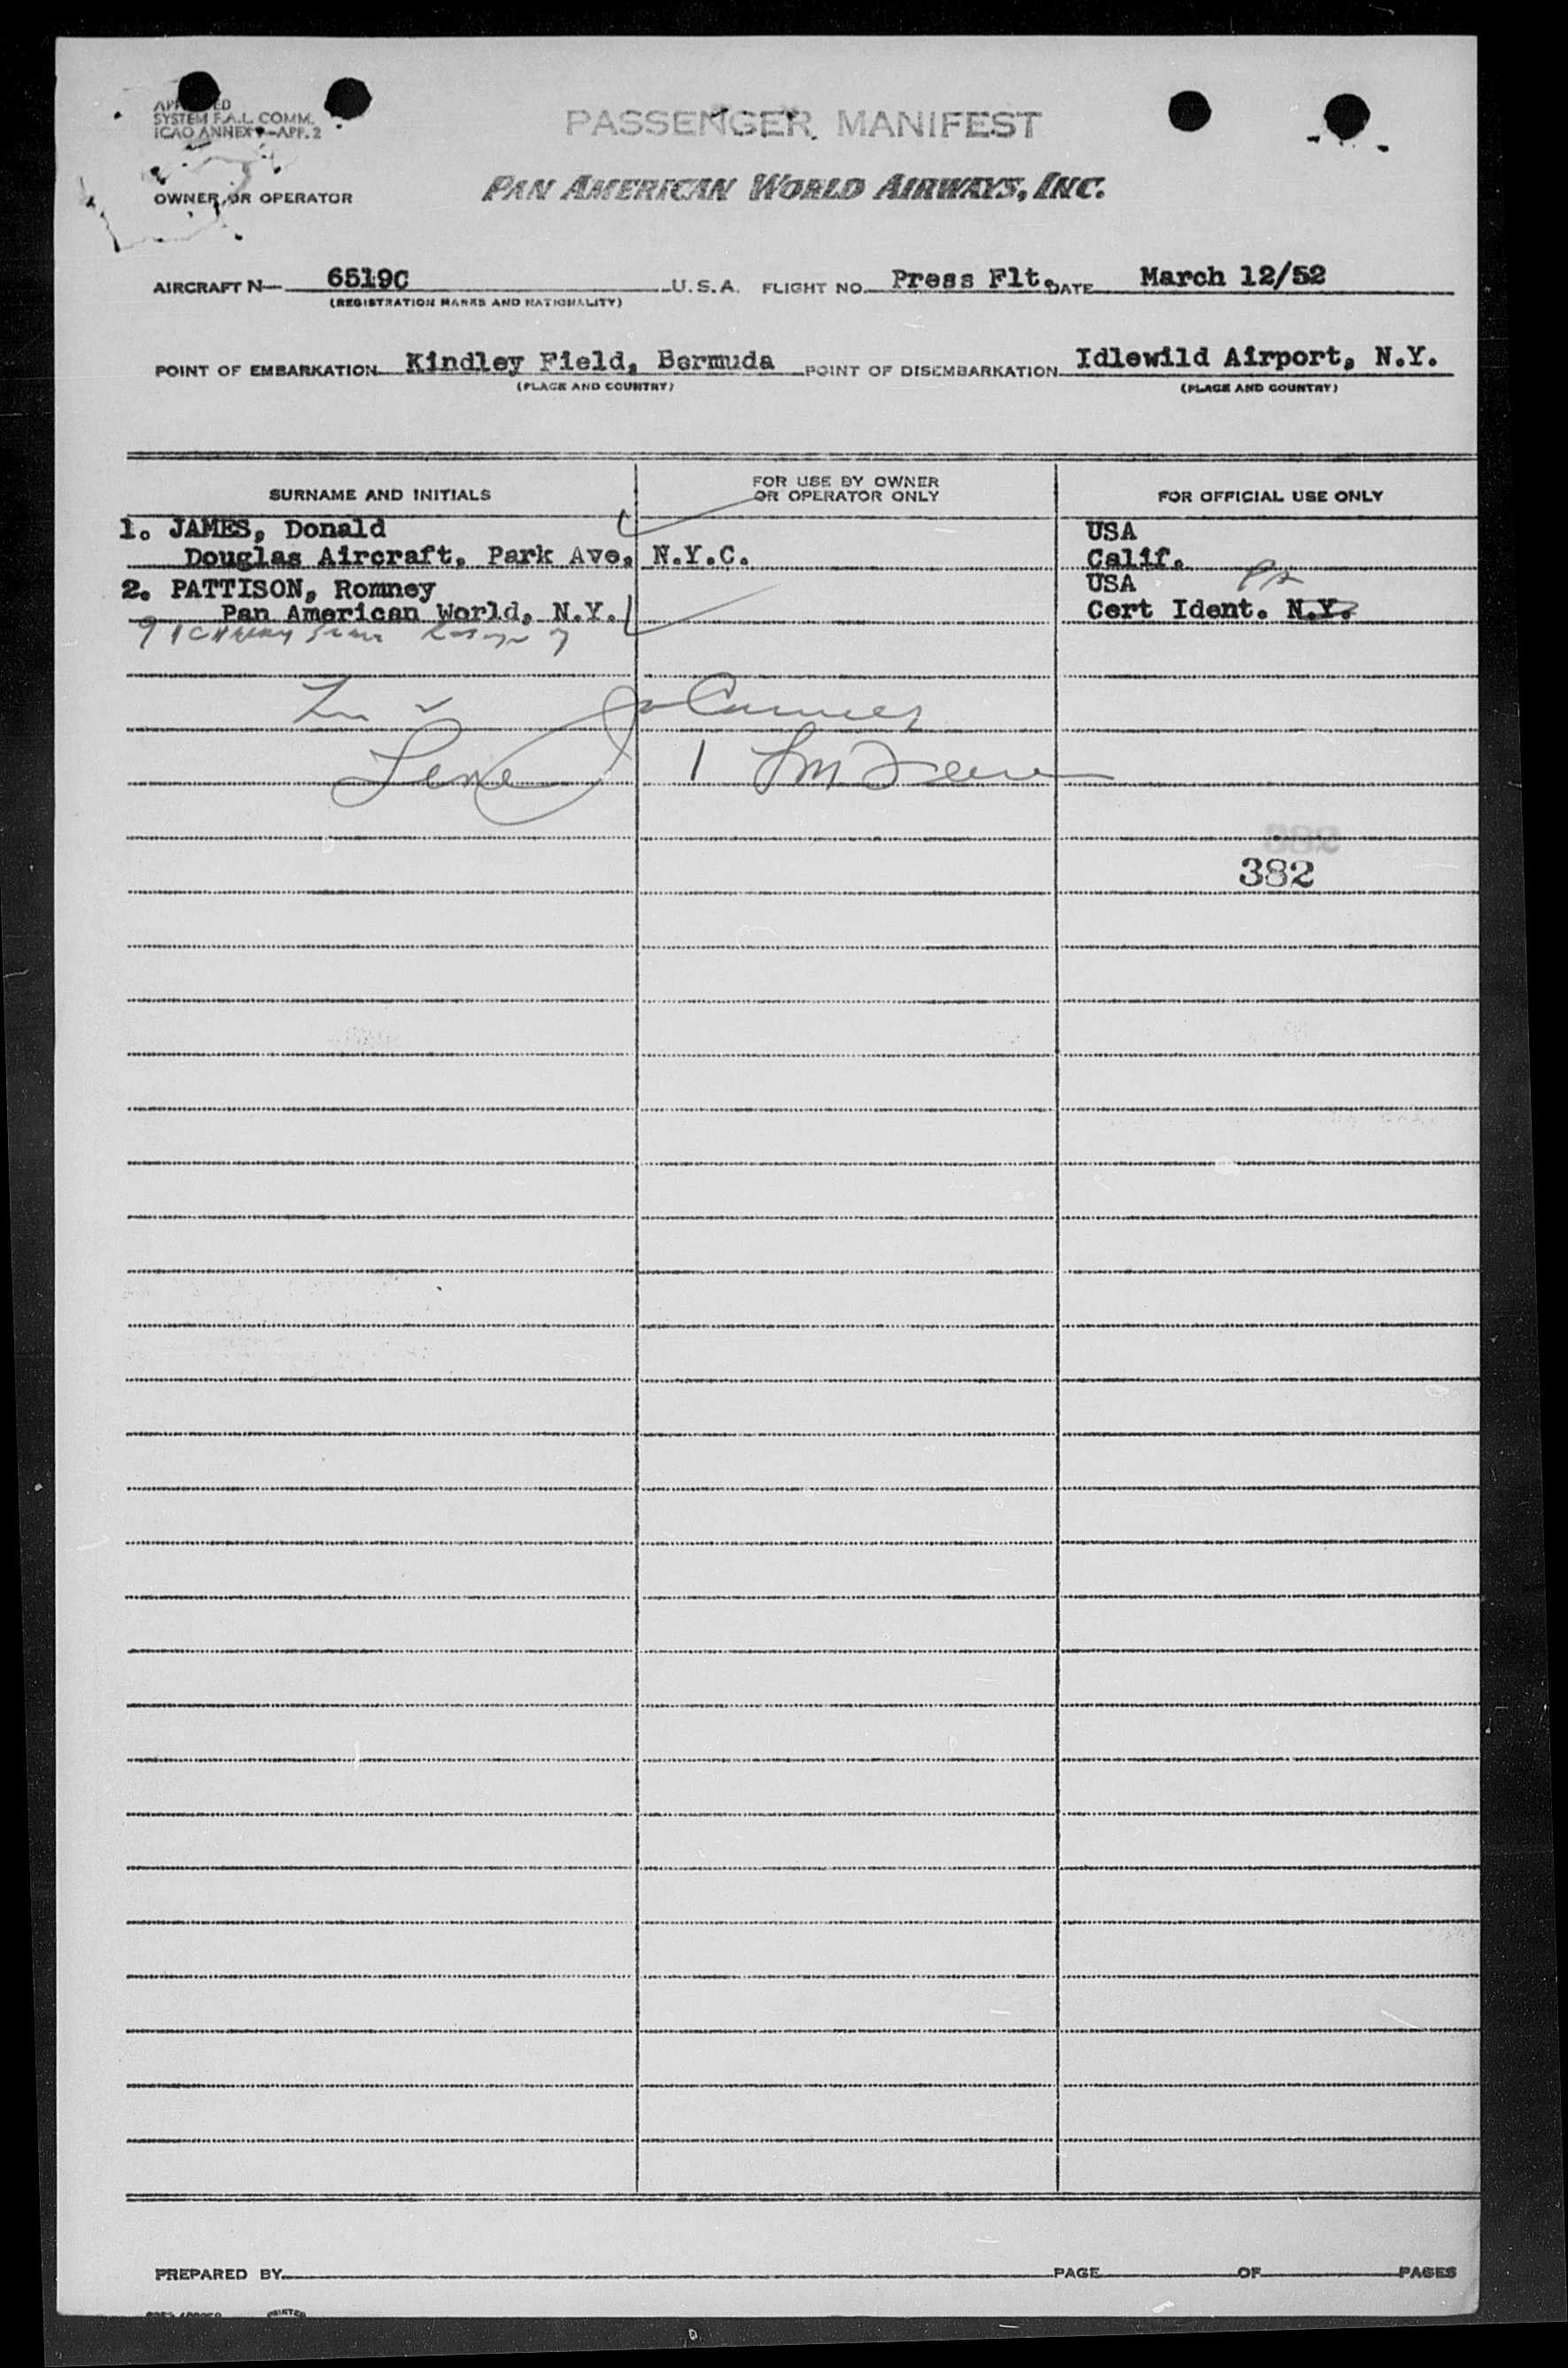 SYSTEM F.A.L. COMM.
ICAO ANNEX 9-APP. 2
PASSENGER MANIFEST
OWNER OR OPERATOR PAN AMERICAN WORLD AIRWAYS, INC.
AIRCRAFT N 6519C U.S.A. FLIGHT NO. Press Flt. DATE March 12/52
(REGISTRATION MARKS AND NATIONALITY)
POINT OF EMBARKATION Kindley Field, Bermuda POINT OF DISEMBARKATION Idlewild Airport, N.Y.
(PLACE AND COUNTRY) (PLACE AND COUNTRY)
SURNAME AND INITIALS FOR USE BY OWNER OR OPERATOR ONLY FOR OFFICIAL USE ONLY
1. JAMES, Donald USA
Douglas Aircraft, Park Ave, N.Y.C. Calif.
2. PATTISON, Romney USA
Pan American World, N.Y. Cert Ident. N.Y.
382
PREPARED BY PAGE OF PAGES